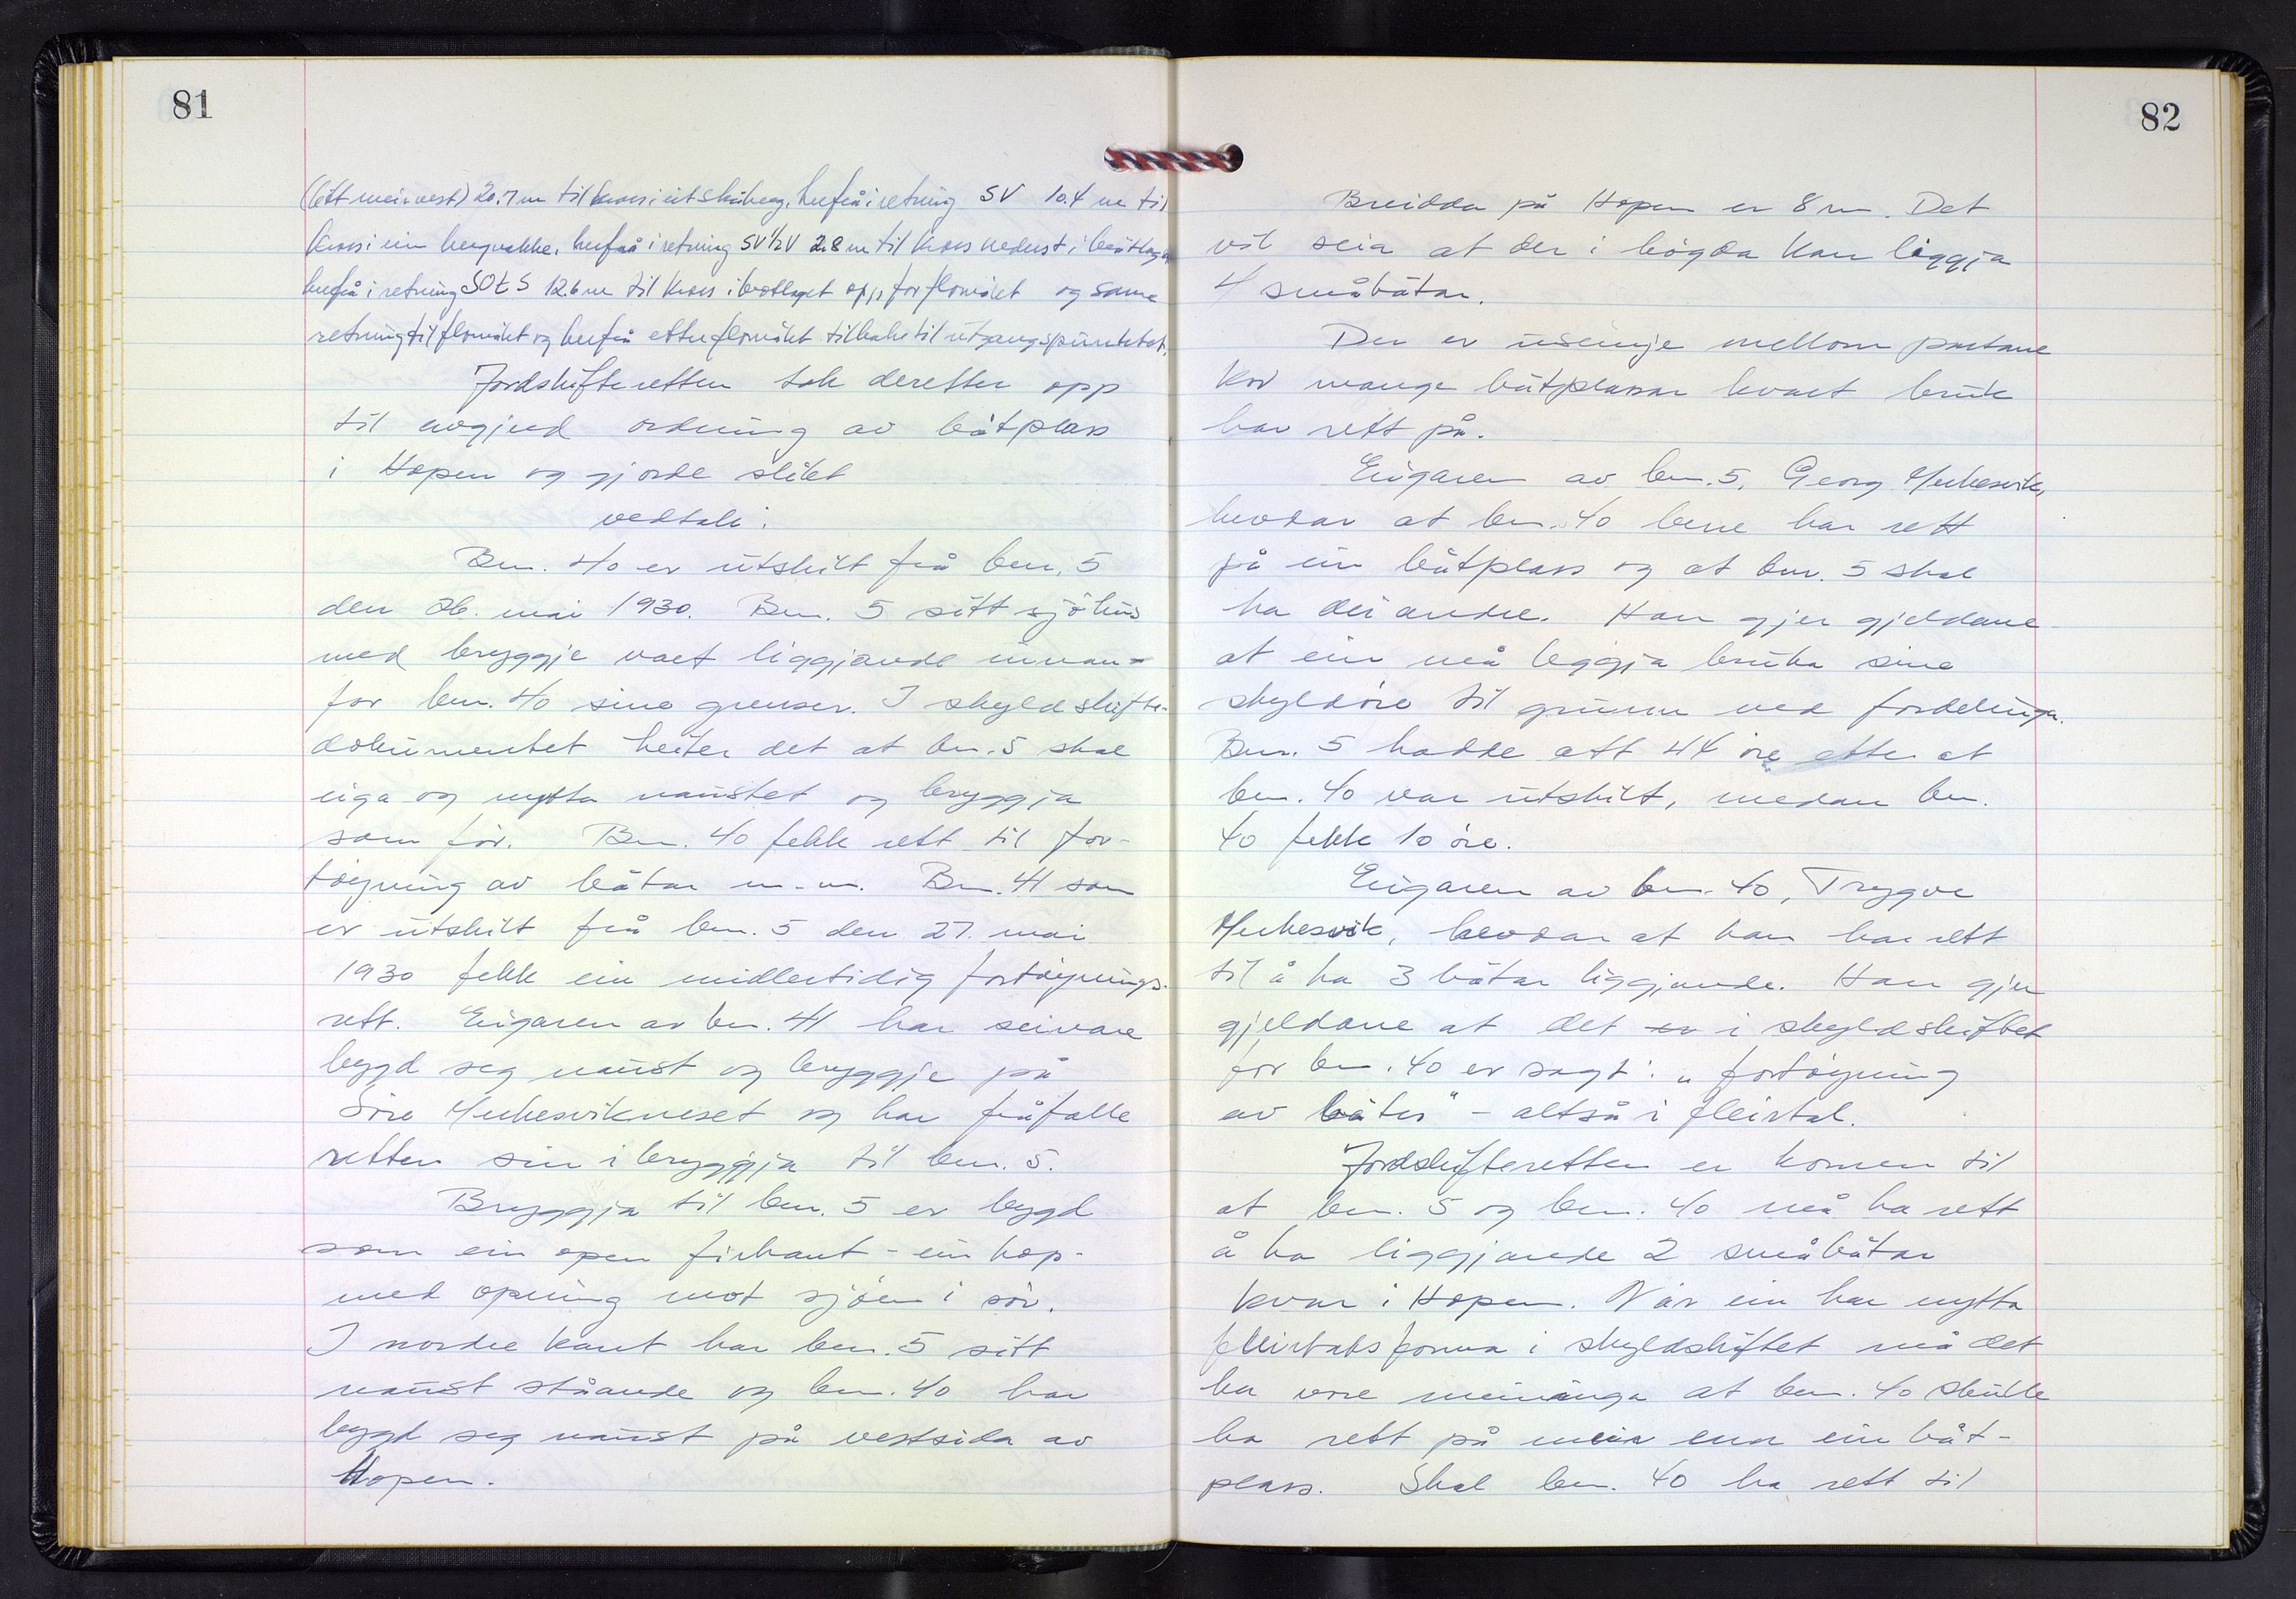 81
(litt meir vest) 20.7 m til kross i utskriberg, herfrå i retning SV 10.4 m til
kross i ein bergnakke, herfrå i retning SV½V 2.8 m til kross nedust i båtlaget
herfrå i retning SOtS 12.6 m til kross i båtlaget opp for flomålet og same
retning til flomålet og herfrå etter flomålet tilbake til utgangspunktet.
Jordskifteretten tok deretter opp
til avgjerd ordning av båtplass
i Hopen og gjorde slikt
vedtak:
Bnr. 40 er utskilt frå bnr. 5
den 26. mai 1930. Bnr. 5 sitt sjöhus
med bryggje vart liggjande innan-
for bnr. 40 sine grenser. I skyldskifte-
dokumentet heiter det at bnr. 5 skal
eiga og nytta naustet og bryggja
som för. Bnr. 40 fekk rett til for-
töyning av båtar m.m. Bnr. 41 som
er utskilt frå bnr. 5 den 27. mai
1930 fekk ein midlertidig fortöynings-
rett. Eigaren av bnr. 41 har seinare
bygd seg naust og bryggje på
Söre Merkesvikneset og har fråfalle
retten sin i bryggja til bnr. 5.
Bryggja til bnr. 5 er bygd
som ein open firkant - ein hop -
med opning mot sjöen i sör.
I nordre kant har bnr. 5 sitt
naust ståande og bnr. 40 har
bygd seg naust på vestsida av
Hopen.
82
Breidda på Hopen er 8 m. Det
vil seia at der i högda kan liggja
4 småbåtar.
Der er usemje mellom partane
kor mange båtplassar kvart bruk
har rett på.
Eigaren av bnr. 5, Georg Merkesvik,
hevdar at bnr. 40 berre har rett
på ein båtplass og at bnr. 5 skal
ha dei andre. Han gjer gjeldane
at ein må leggja bruka sine
skyldöre til grunn ved fordelinga.
Bnr. 5 hadde att 44 öre etter at
bnr. 40 var utskilt, medan bnr.
40 fekk 10 öre.
Eigaren av bnr. 40, Trygve
Merkesvik, hevdar at han har rett
til å ha 3 båtar liggjande. Han gjer
gjeldane at det er i skyldskiftet
for bnr. 40 er sagt: „fortöyning
av båter" - altså i fleirtal.
Jordskifteretten er komen til
at bnr. 5 og bnr. 40 må ha rett
å ha liggjande 2 småbåtar
kvar i Hopen. Når ein har nytta
fleirtalsforma i skyldskiftet må det
ha vore meininga at bnr. 40 skulle
ha rett på meir enn ein båt-
plass. Skal bnr. 40 ha rett til